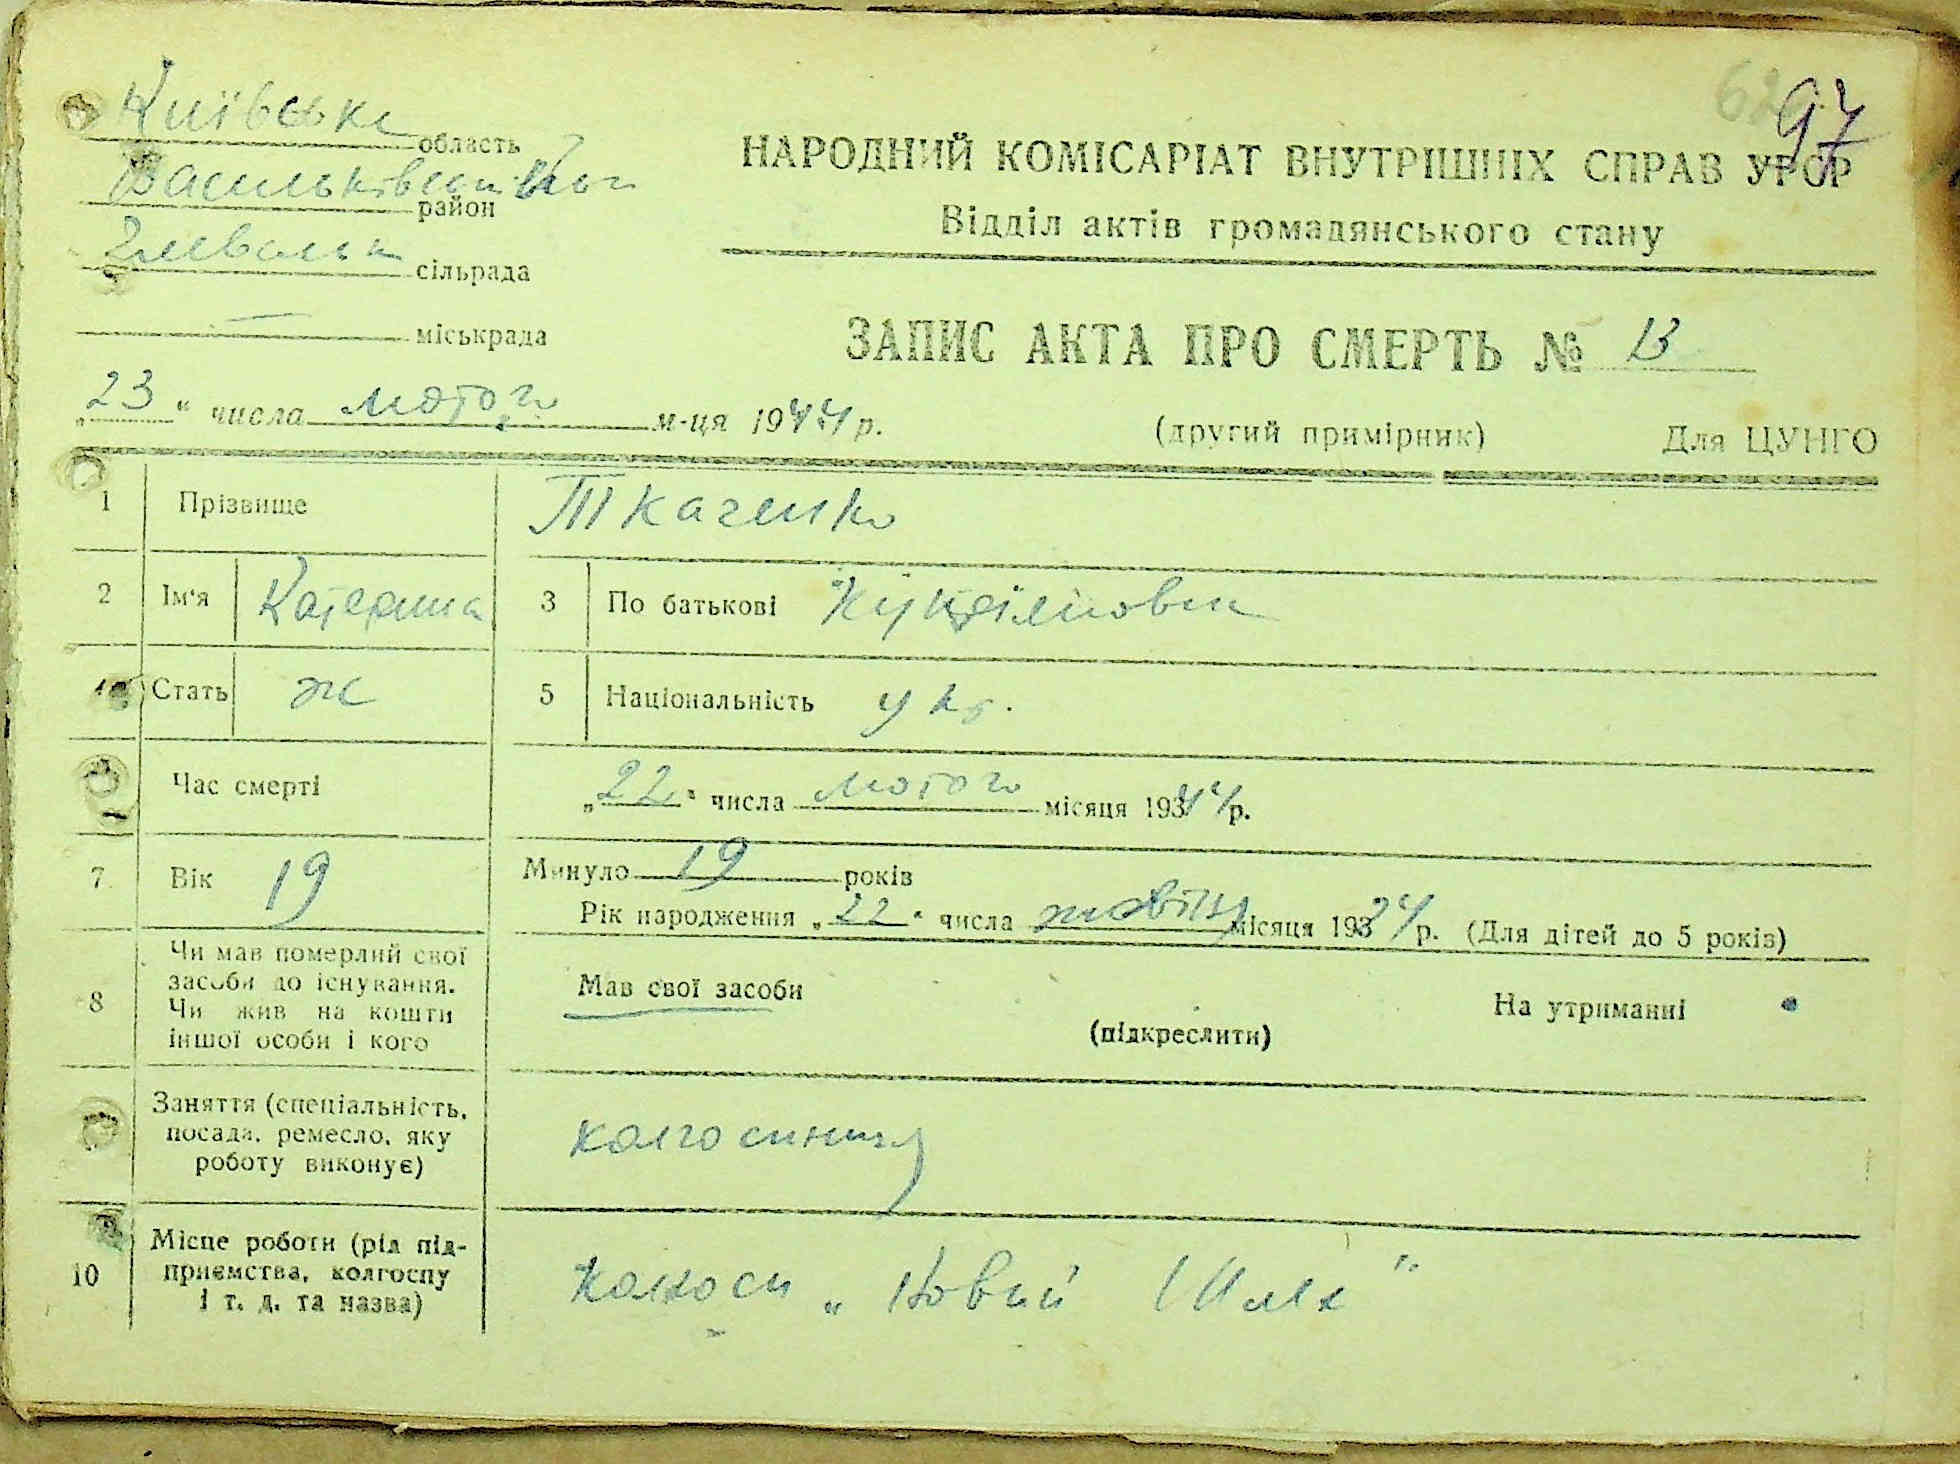 62 97
Київська область
Васильківський район
сільрада
— міськрада
НАРОДНИЙ КОМІСАРІАТ ВНУТРІШНІХ СПРАВ УРСР
Відділ актів громадянського стану
ЗАПИС АКТА ПРО СМЕРТЬ № 13
„23“ числа лютого м-ця 1944 р.
(другий примірник) Для ЦУНГО
1 Прізвище Ткаченко
2 Ім'я Катерина 3 По батькові
4 Стать ж 5 Національність укр.
Час смерті „22“ числа лютого місяця 1944 р.
7 Вік 19 Минуло 19 років
Рік народження „22“ числа жовтня місяця 1924 р. (Для дітей до 5 років)
8 Чи мав померлий свої
засоби до існування.
Чи жив на кошти
іншої особи і кого
Мав свої засоби
(підкреслити)
На утриманні
Заняття (спеціальність,
посада, ремесло, яку
роботу виконує)
колгоспниця
10 Місце роботи (рід під-
приємства, колгоспу
і т. д. та назва)
Колгосп „Новий Шлях"